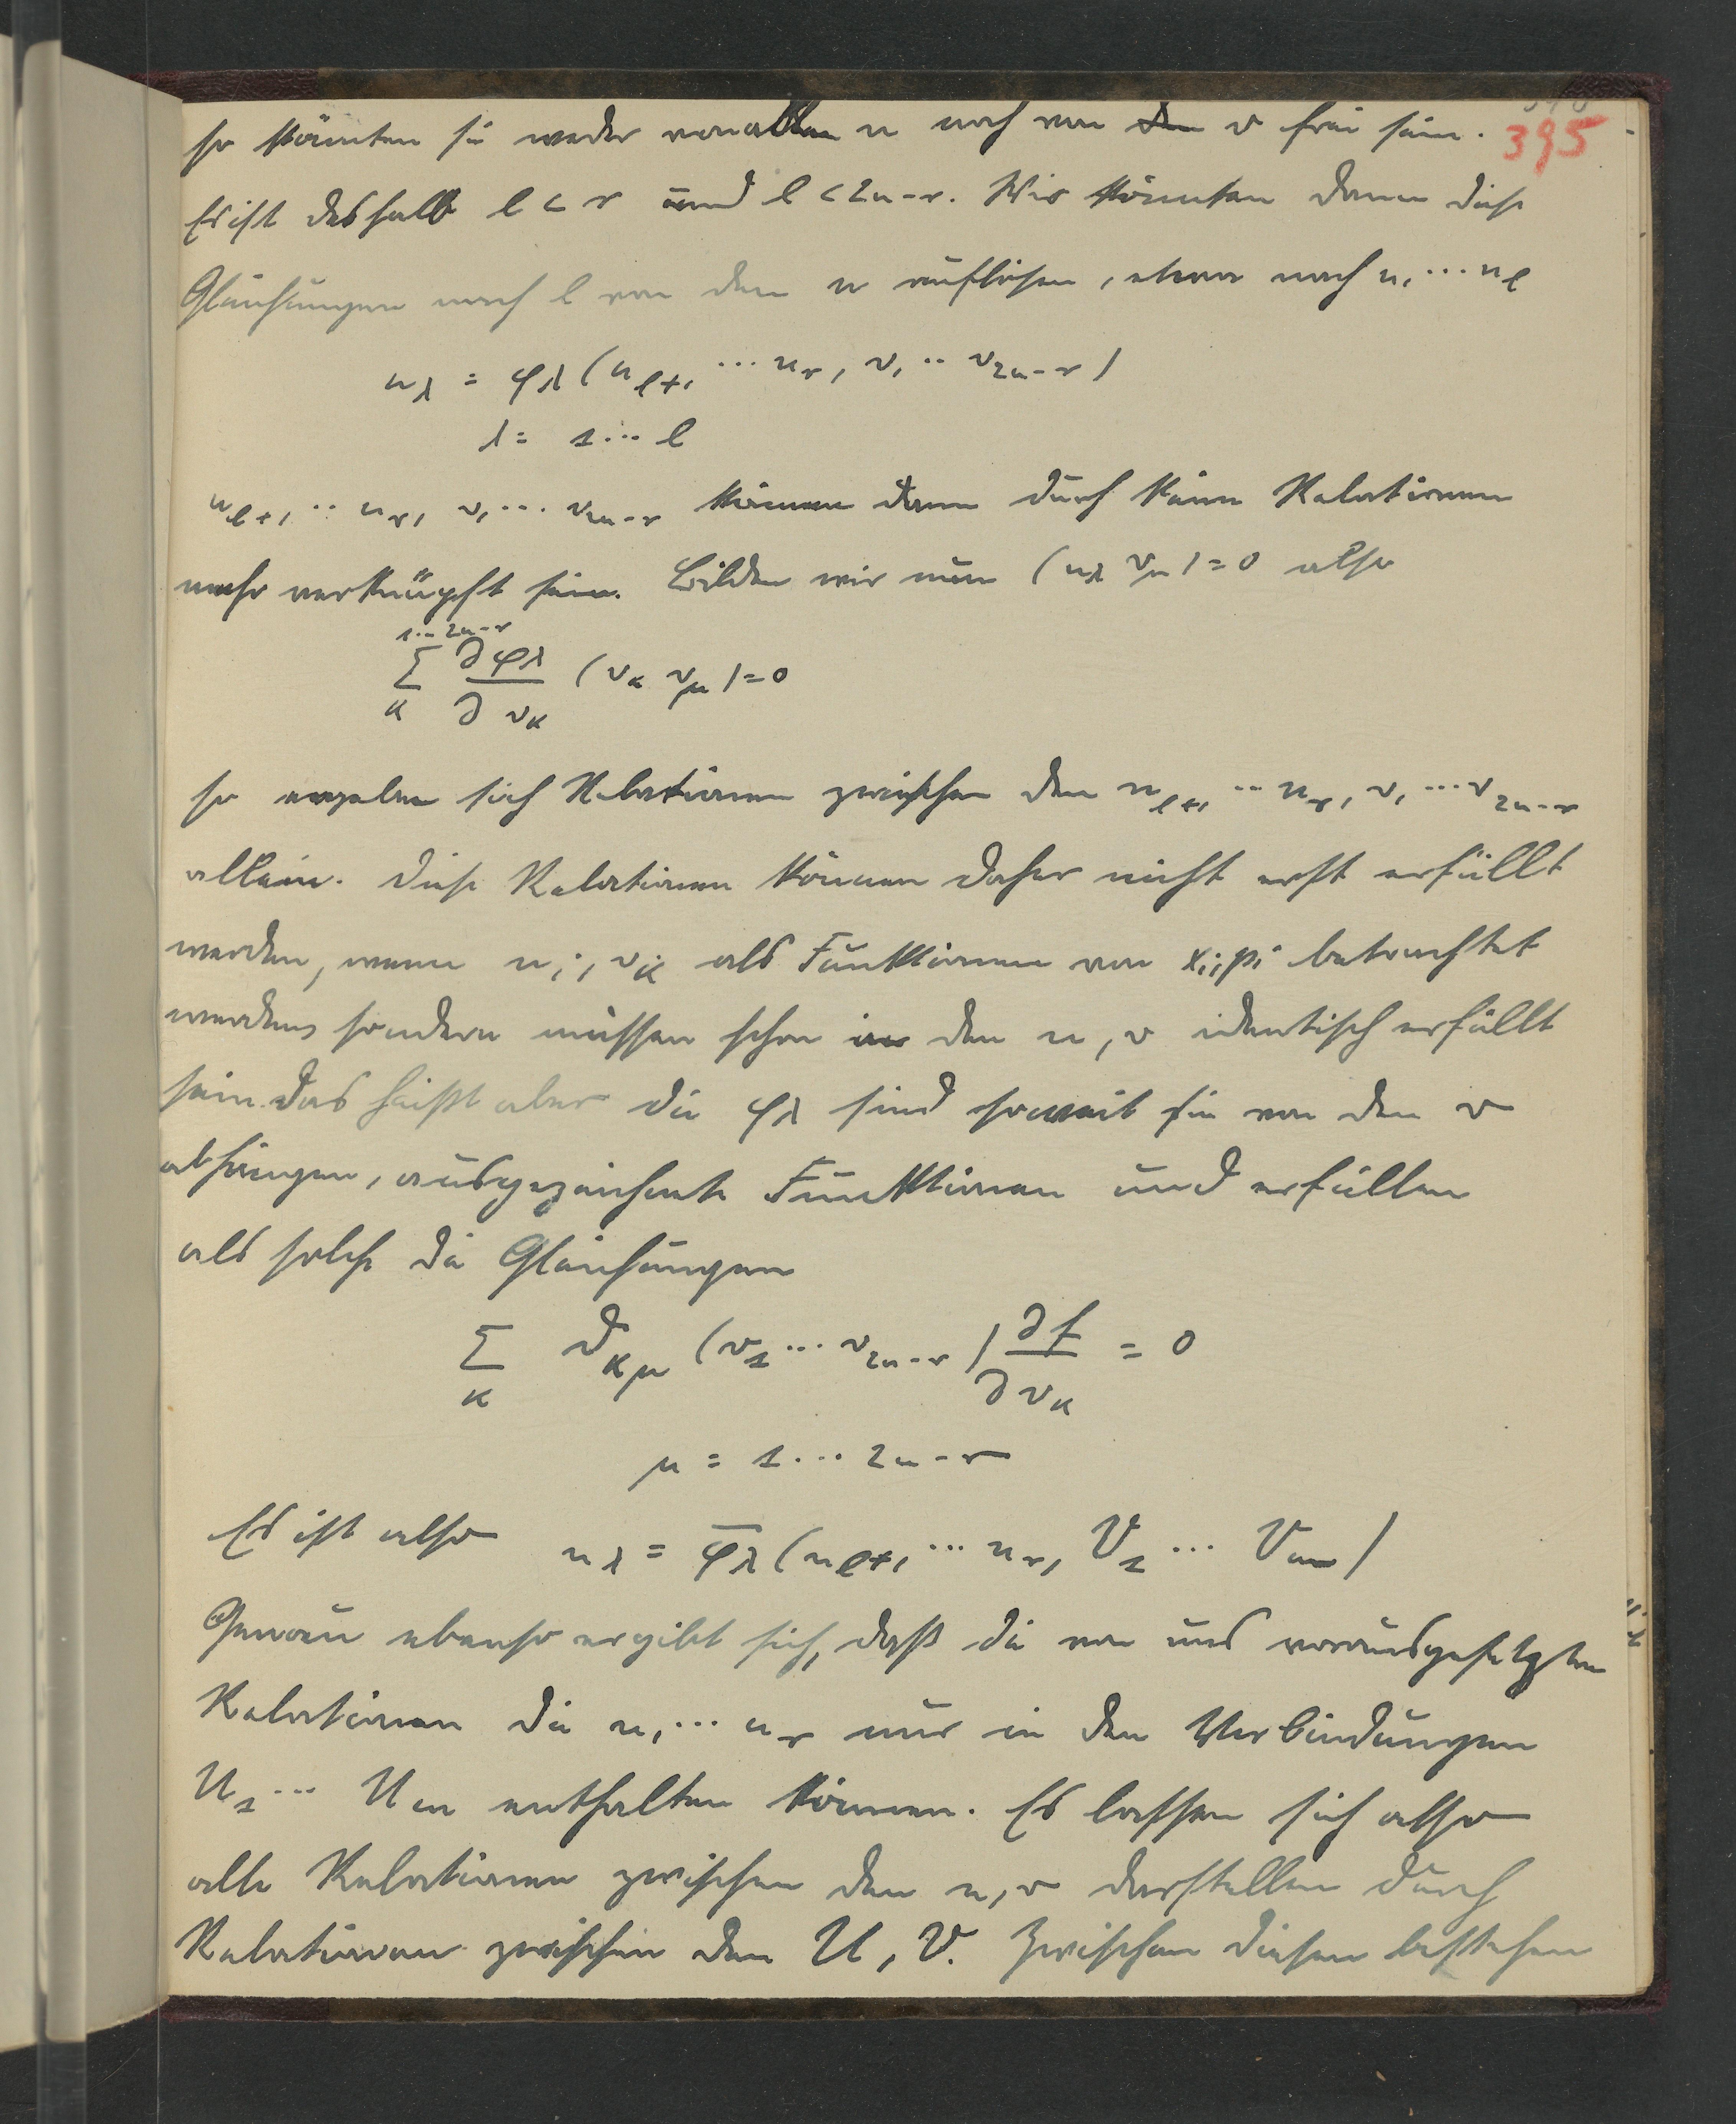 395
so könnten sie weder von allen u noch von den v frei sein.
Es ist deshalb l < r und l < 2n-r. Wir könnten dann diese
Gleichungen nach l von den u auflösen, etwa nach u₁ ... u_l
u_λ = φ_λ (u_{l+1} ... u_r, v₁ .. v_{2n-r})
λ = 1 ... l
u_{l+1} .. u_r, v₁ ... v_{2n-r} können dann durch keine Relationen
mehr verknüpft sein. Bilden wir nun (u_λ v_μ) = 0 also
1 ... 2n-r
Σ_κ ∂φ_λ/∂v_κ (v_κ v_μ) = 0
so ergeben sich Relationen zwischen den u_{l+1} .. u_r, v₁ ... v_{2n-r}
allein. Diese Relationen können daher nicht erst erfüllt
werden, wenn u_i, v_k als Funktionen von x_i, p_i betrachtet
werden, sondern müssen schon in den u, v identisch erfüllt
sein. Das heißt aber die φ_λ sind soweit sie von den v
abhängen, ausgezeichnete Funktionen und erfüllen
als solche die Gleichungen
Σ_κ ϑ_{κμ} (v₁ ... v_{2n-r}) ∂f/∂v_κ = 0
μ = 1 ... 2n-r
Es ist also u_λ = φ̄_λ (u_{l+1} ... u_r, V₁ ... V_m)
Genau ebenso ergibt sich, daß die von uns vorausgesetzten
Relationen die u₁ ... u_r nur in den Verbindungen
U₁ ... U_m enthalten können. Es lassen sich also
alle Relationen zwischen den u, v darstellen durch
Relationen zwischen den U, V. Zwischen diesen bestehen